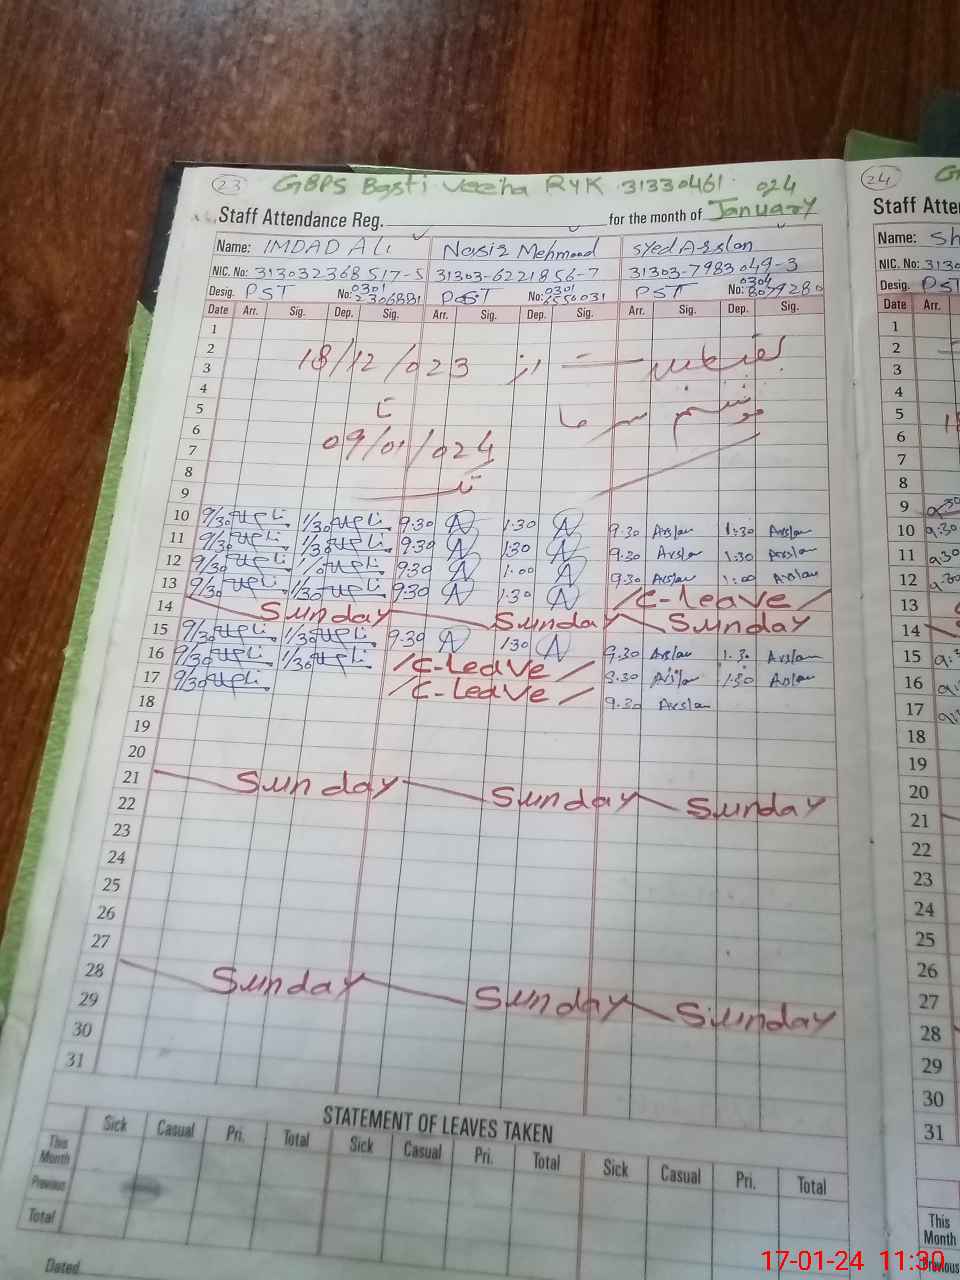 23 GBPS Basti Veeha RYK 31330461 024
Staff Attendance Reg. for the month of January
Name: IMDAD ALi Nasir Mehmood Syed Arslan
NIC. No: 313032368517-5 31303-6221856-7 31303-7983049-3
Desig. PST No: 0301 2306881 PST No: 0301 PST No: 0304 8079280
Date Arr. Sig. Dep. Sig. Arr. Sig. Dep. Sig. Arr. Sig. Dep. Sig.
1
2
3 18/12/023 از
4
5 تا
6
7 09/01/024
8
9
10 9/30 1/30 9:30 1:30 9:30 Arslan 1:30 Arslan
11 9/30 1/30 9:30 1:30 9:30 Arslan 1:30 Arslan
12 9/30 9:30 1:00 9:30 Arslan 1:00 Arslan
13 9/30 1/30 9:30 1:30 C-Leave
14 Sunday Sunday Sunday
15 9/30 1/30 9:30 1:30 9:30 Arslan 1:30 Arslan
16 9/30 1/30 C-Leave 9:30 Arslan 1:30 Arslan
17 9/30 C-Leave 9:30 Arslan
18
19
20
21 Sunday Sunday Sunday
22
23
24
25
26
27
28 Sunday Sunday Sunday
29
30
31
STATEMENT OF LEAVES TAKEN
Sick Casual Pri. Total Sick Casual Pri. Total Sick Casual Pri. Total
This Month
Previous
Total
Dated
24
Staff Atte
Name: Sh
NIC. No: 3130
Desig. PST
Date Arr.
1
2
3
4
5
6
7
8
9
10 9:30
11 9:30
12
13
14
15
16
17
18
19
20
21
22
23
24
25
26
27
28
29
30
31
This Month
Previous
17-01-24 11:30